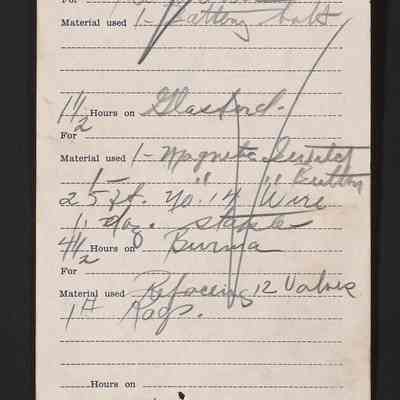 For
Material used 1- Battery bolt
1 1/2 Hours on Glasford.
For
Material used 1- Magneto Switch
1- " " Button
25 ft. No. 14 Wire
1 doz. staples
4 1/2 Hours on Burma
For
Material used Refacing 12 Valves
1 # Rags.
Hours on